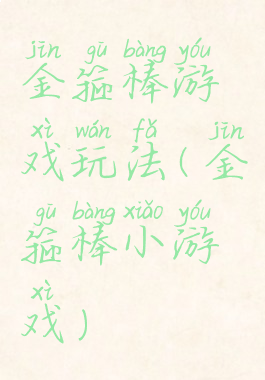 jīn gū bàng yóu
金箍棒游
xì wán fǎ jīn
戏玩法(金
gū bàng xiǎo yóu
箍棒小游
xì
戏)